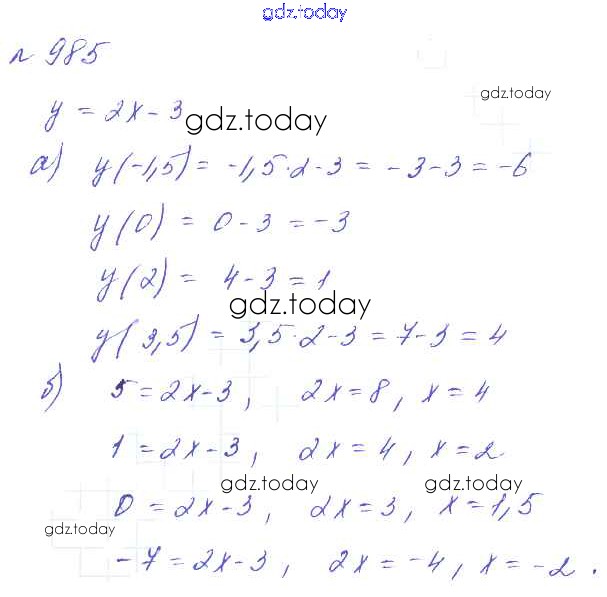 gdz.today
№ 985
gdz.today
y = 2x - 3
gdz.today
а) y(-1,5) = -1,5·2-3 = -3-3 = -6
y(0) = 0-3 = -3
y(2) = 4-3 = 1
gdz.today
y(3,5) = 3,5·2-3 = 7-3 = 4
б) 5 = 2x-3, 2x = 8, x = 4
1 = 2x-3, 2x = 4, x = 2
gdz.today gdz.today
0 = 2x-3, 2x = 3, x = 1,5
gdz.today
-7 = 2x-3, 2x = -4, x = -2.